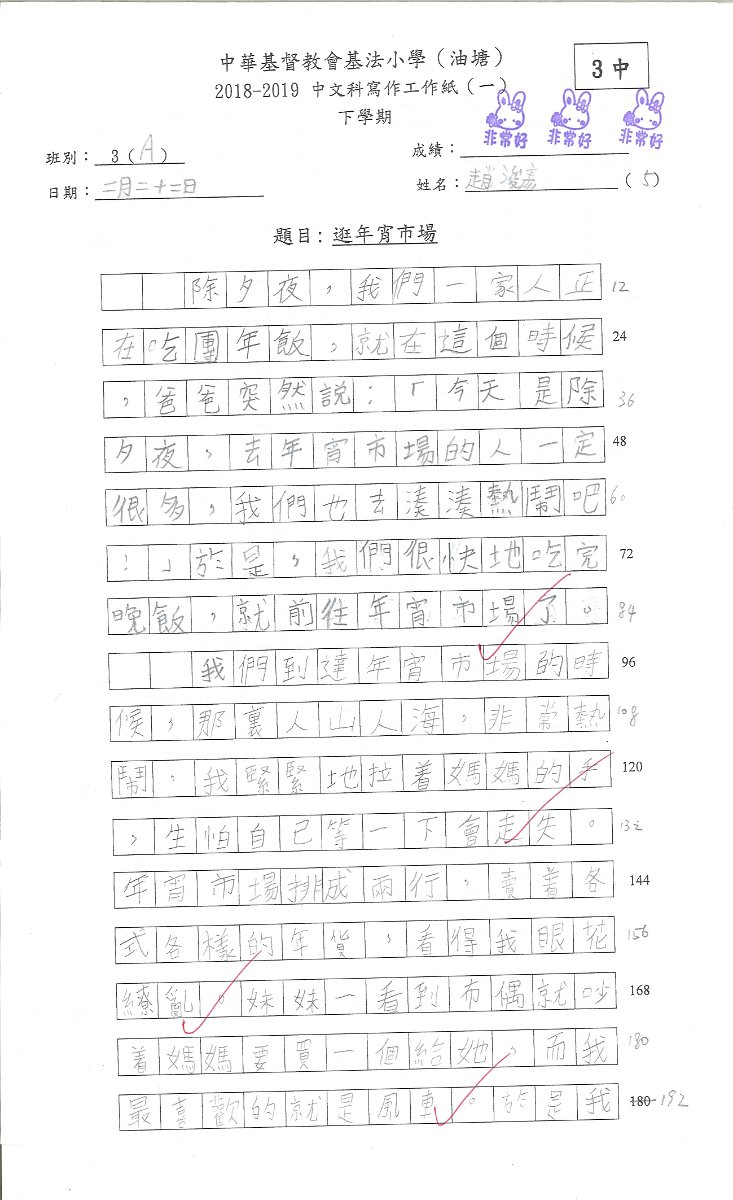 中華基督教會基法小學（油塘）
3中
2018-2019 中文科寫作工作紙（一）
下學期
非常好 非常好 非常好
班別： 3（A）
成績：
日期：二月二十二日
姓名：趙浚彥（5）
題目：逛年宵市場
除夕夜，我們一家人正 12
在吃團年飯，就在這個時候 24
，爸爸突然說：「今天是除 36
夕夜，去年宵市場的人一定 48
很多，我們也去湊湊熱鬧吧 60
！」於是，我們很快地吃完 72
晚飯，就前往年宵市場了。 84
我們到達年宵市場的時 96
候，那裏人山人海，非常熱 108
鬧，我緊緊地拉着媽媽的手 120
，生怕自己等一下會走失。 132
年宵市場排成兩行，賣着各 144
式各樣的年貨，看得我眼花 156
繚亂。妹妹一看到布偶就吵 168
着媽媽要買一個給她，而我 180
最喜歡的就是風車。於是我 180 192